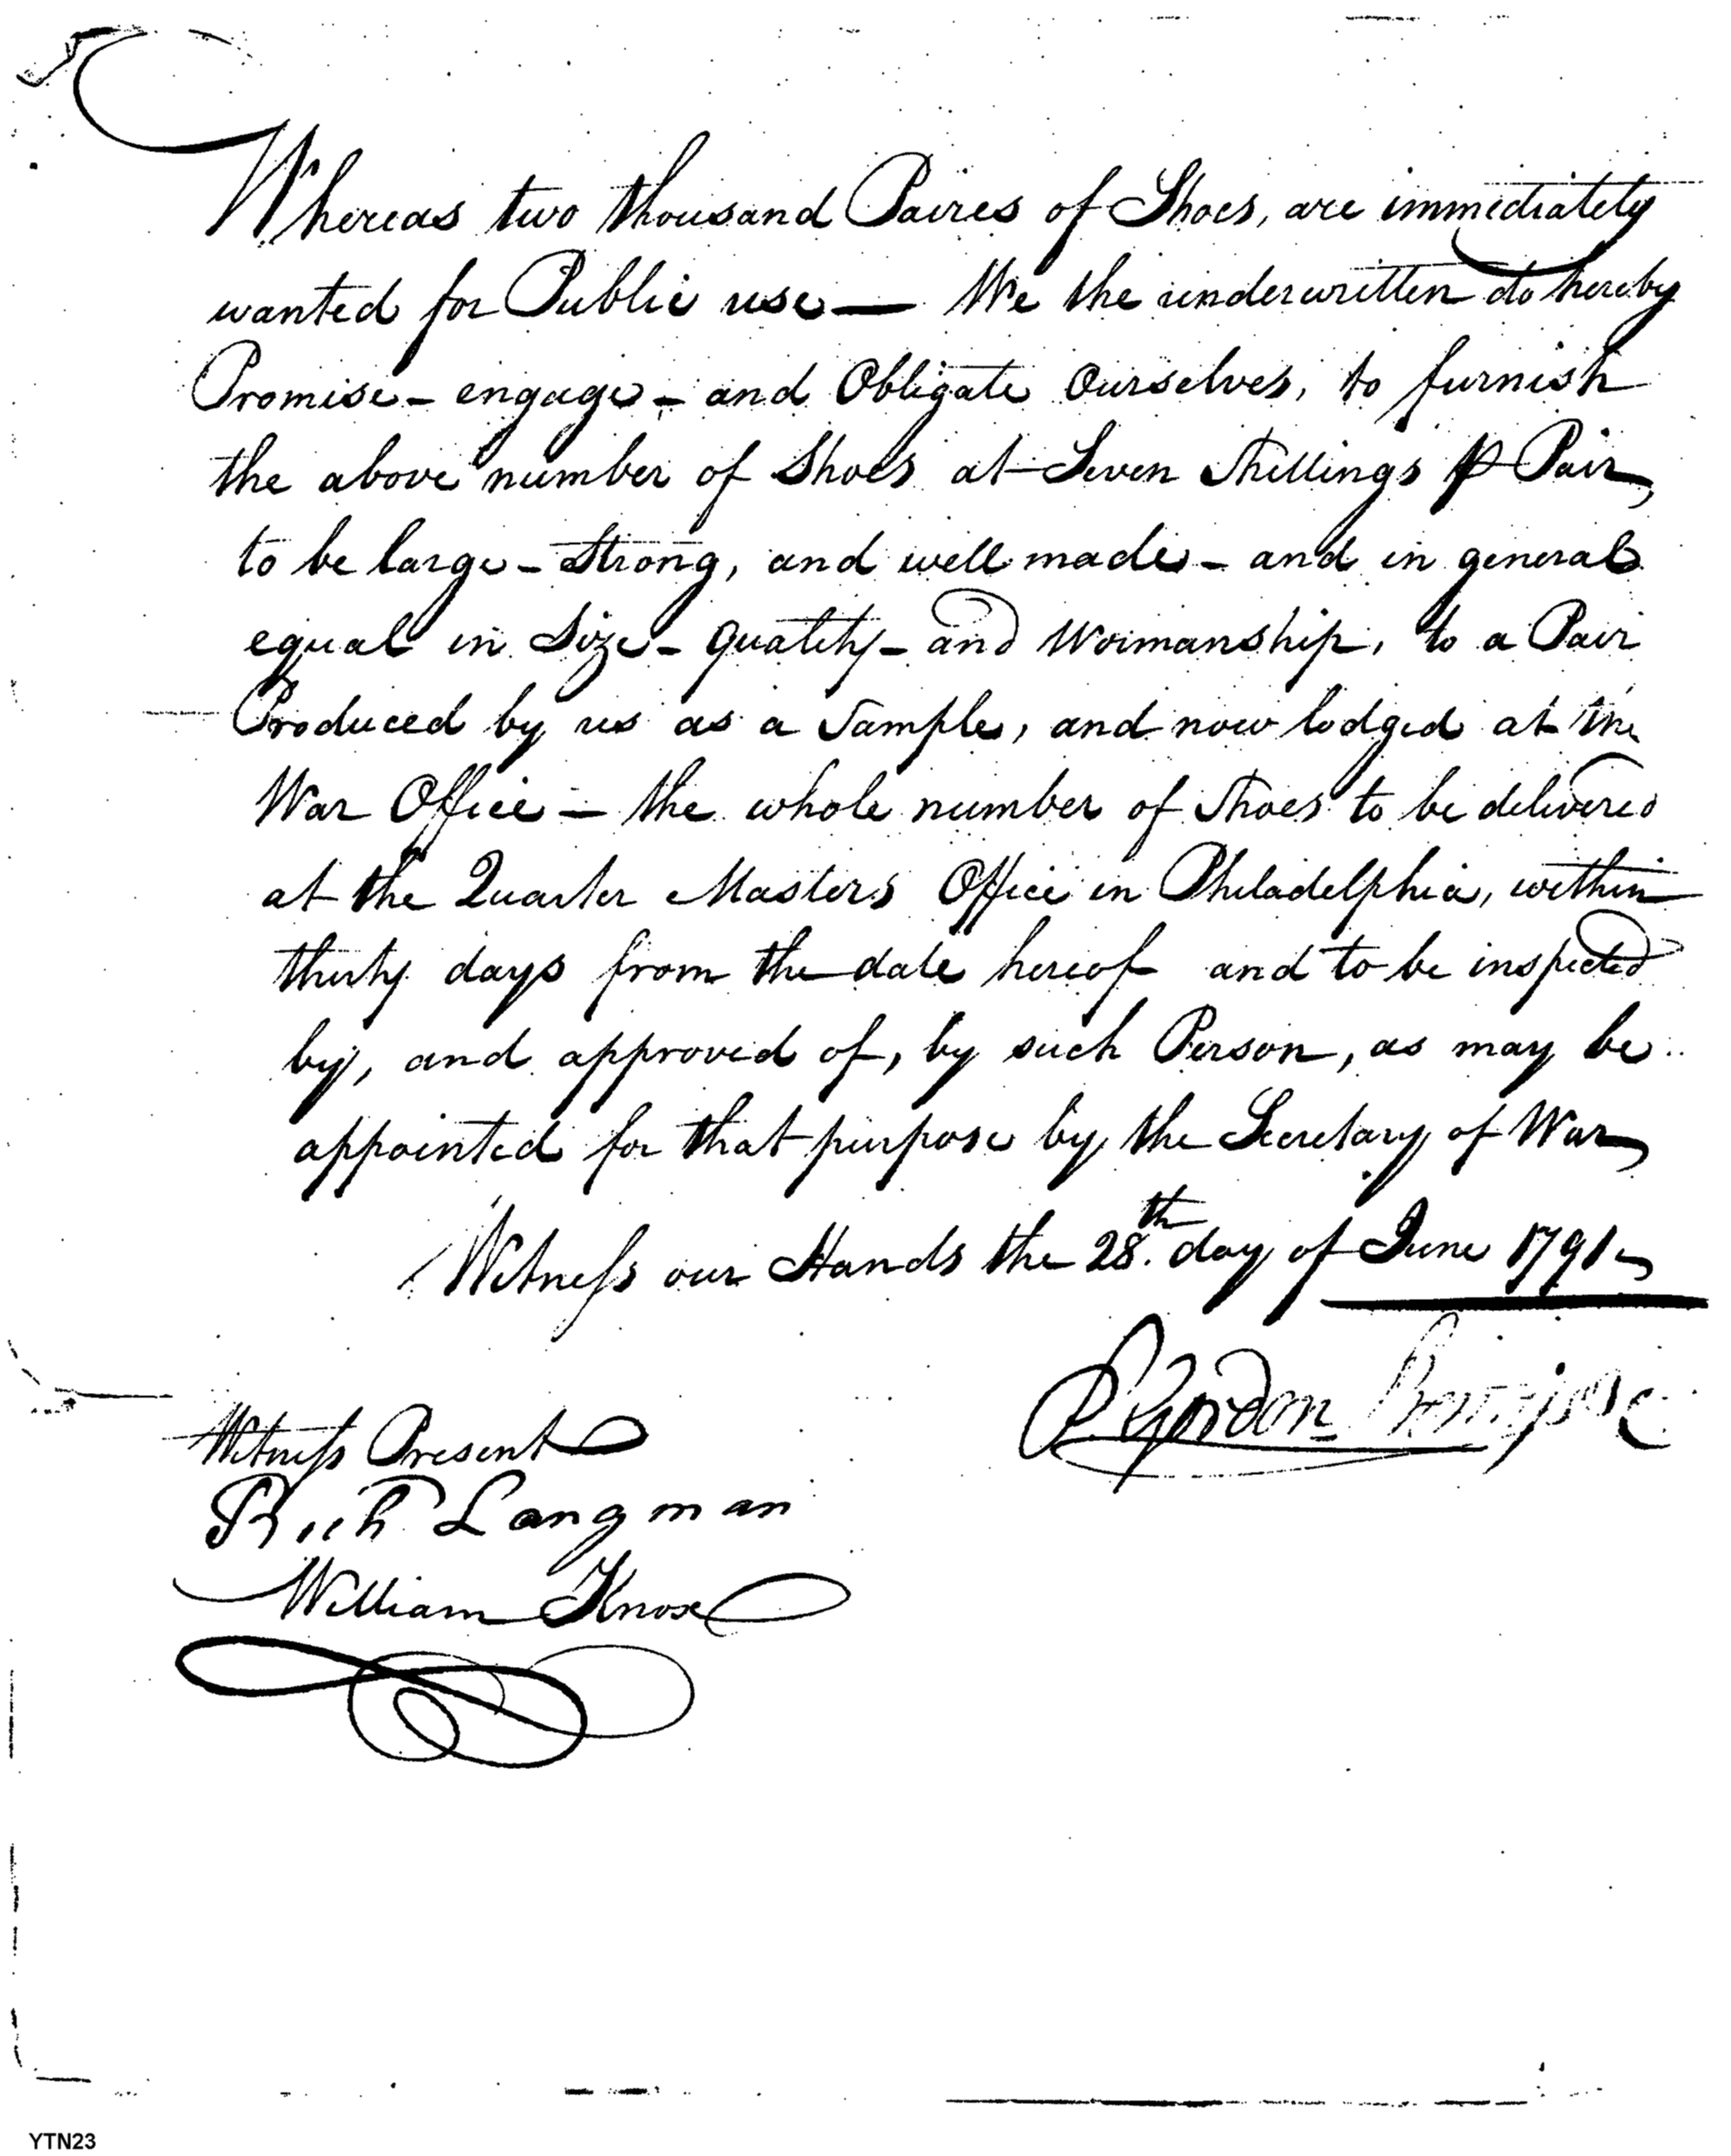 Whereas two thousand Paires of Shoes, are immediately
wanted for Public use — We the underwritten do hereby
Promise - engage - and Obligate Ourselves, to furnish
the above number of Shoes at Seven Shillings ⅌ Pair,
to be large - Strong, and well made - and in general
equal in Size - quality - and Wormanship, to a Pair
Produced by us as a Sample, and now lodged at the
War Office - the whole number of Shoes to be delivered
at the Quarter Masters Office in Philadelphia, within
thirty days from the date hereof and to be inspected
by, and approved of, by such Person, as may be
appointed for that purpose by the Secretary of War,
Witness our Hands the 28th day of June 1791
Witness Present
Langman
William Knox
YTN23